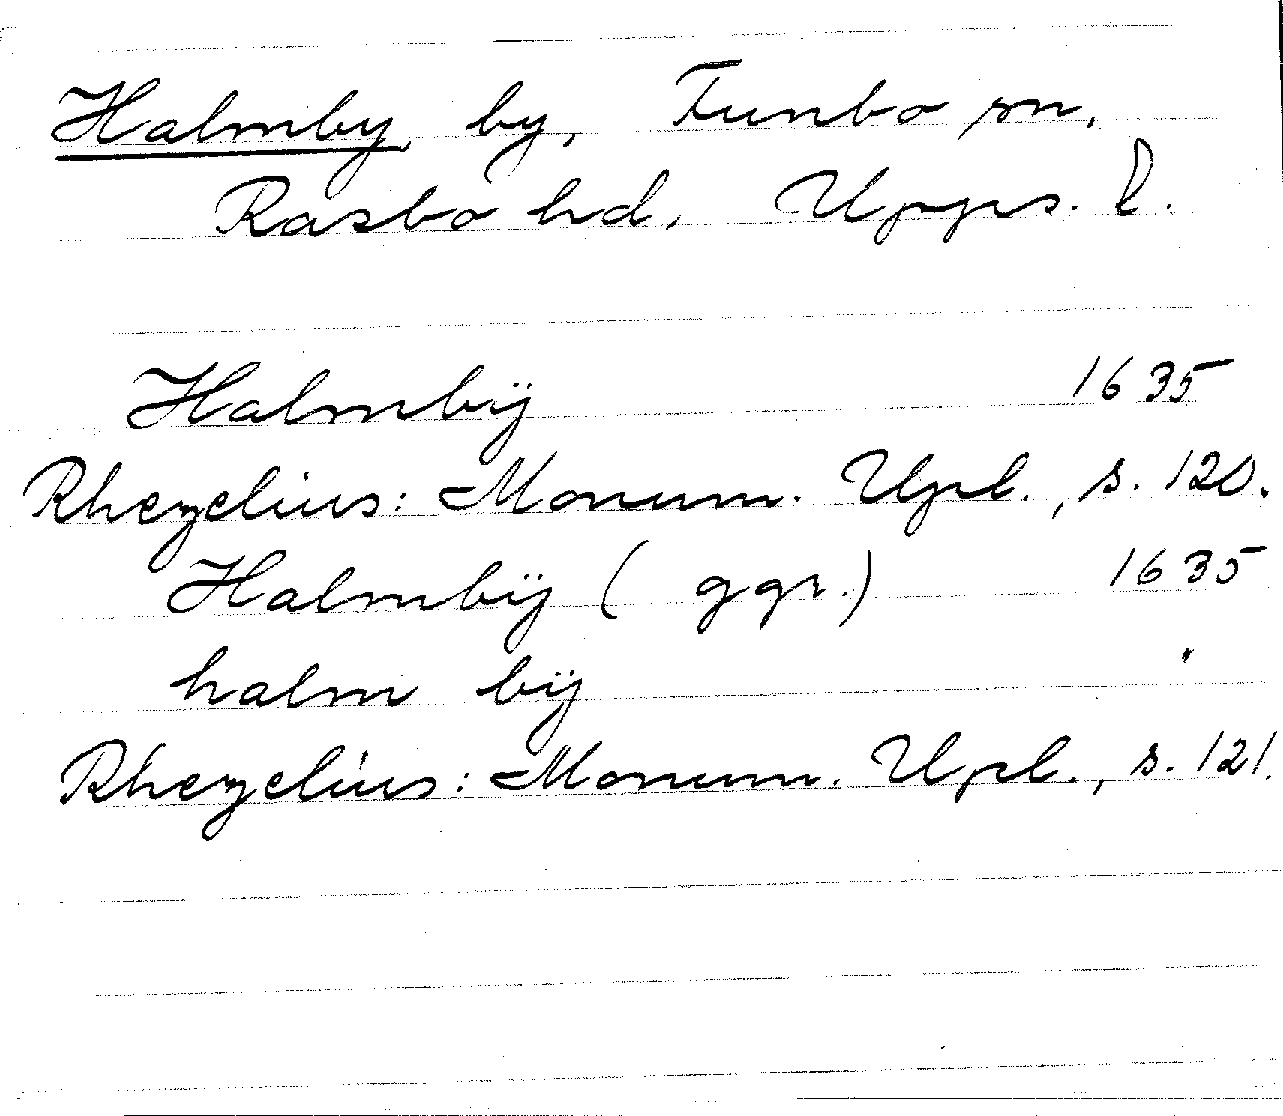 Halmby, by, Funbo sn,
Rasbo hd, Upps. l.
Halmbÿ 1635
Rhezelius: Monum. Upl., s. 120.
Halmbÿ (ggr.) 1635
halm bÿ "
Rhezelius: Monum. Upl., s. 121.